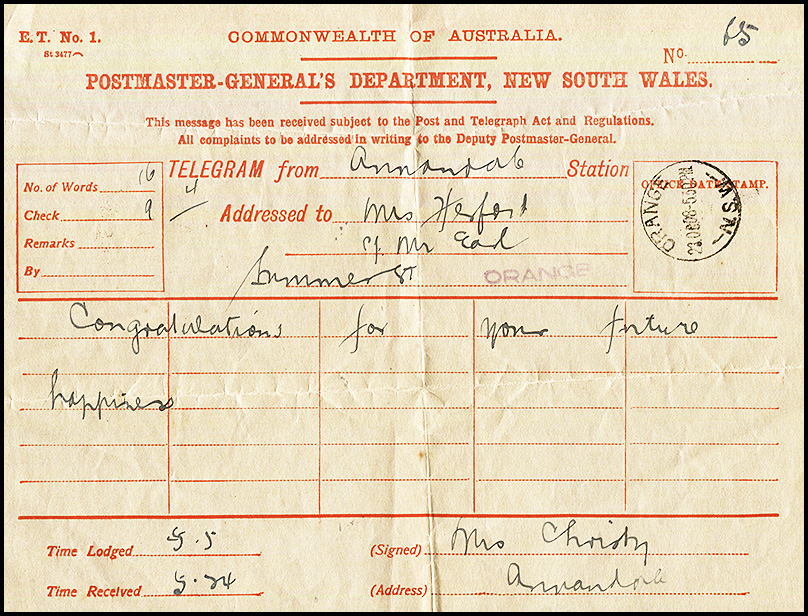 E.T. No. 1.
St 3477
COMMONWEALTH OF AUSTRALIA.
No. 65
POSTMASTER-GENERAL'S DEPARTMENT, NEW SOUTH WALES.
This message has been received subject to the Post and Telegraph Act and Regulations.
All complaints to be addressed in writing to the Deputy Postmaster-General.
No. of Words 16
Check 9
Remarks
By
TELEGRAM from Annandale Station
Addressed to Mrs Herfort
c/. Mr Earl
Summer St ORANGE
OFFICE DATE STAMP.
ORANGE N.S.W.
Congratulations for your future
happiness
Time Lodged 5.5
(Signed) Mrs Christy
Time Received 5.24
(Address) Annandale